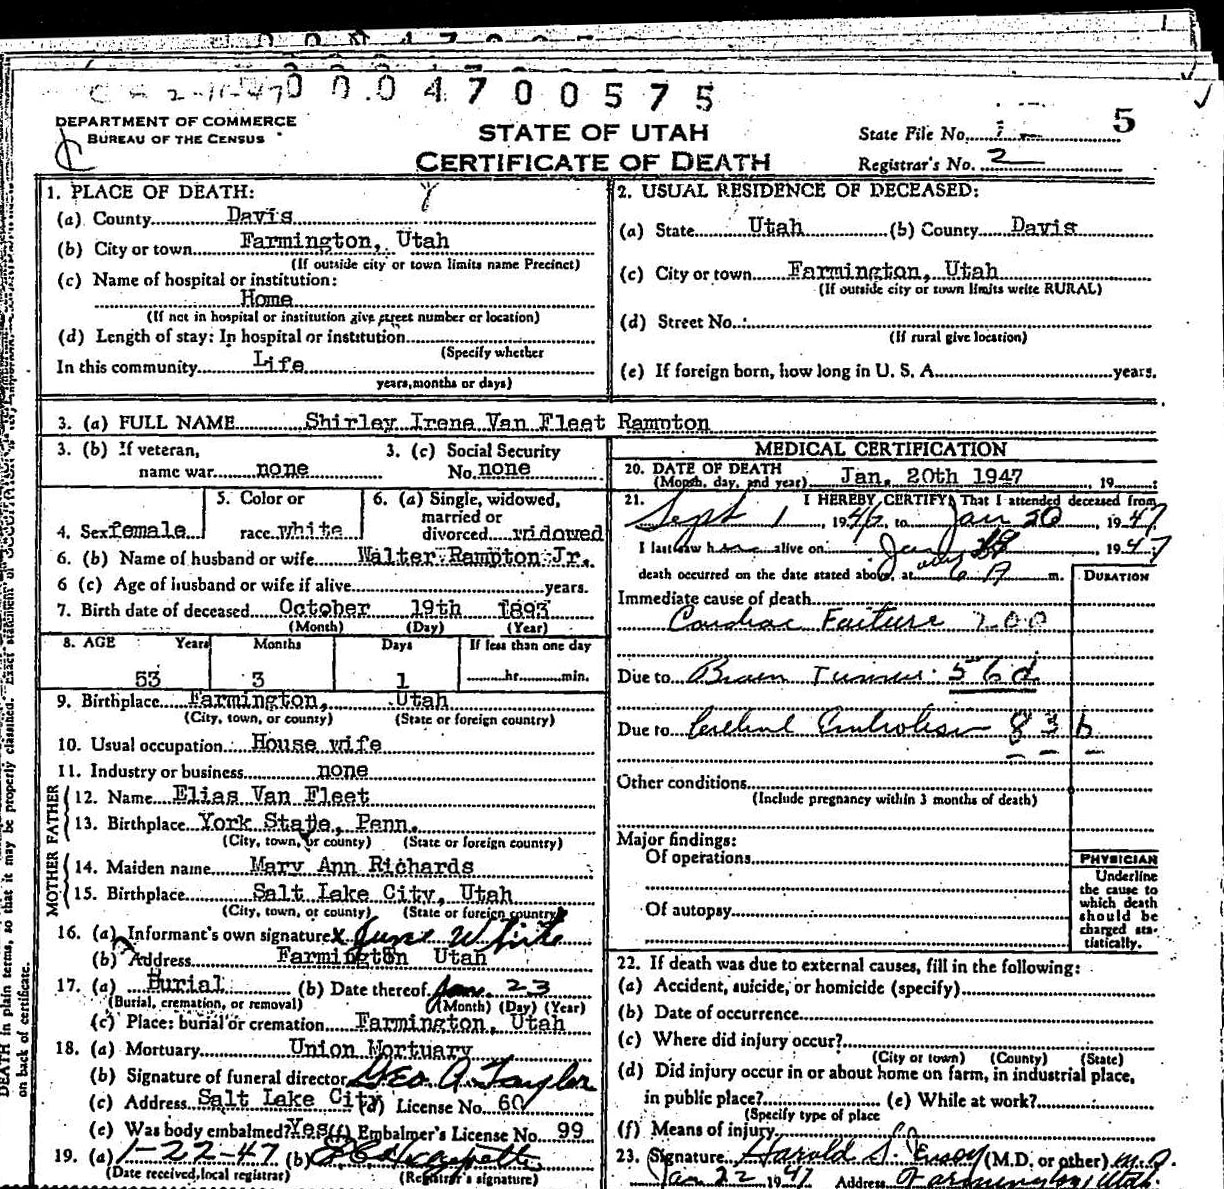 0 0 0 4 7 0 0 5 7 5
2-11-47
DEPARTMENT OF COMMERCE
BUREAU OF THE CENSUS
STATE OF UTAH
CERTIFICATE OF DEATH
State File No.
5
Registrar's No. 2
1. PLACE OF DEATH:
(a) County Davis
(b) City or town Farmington, Utah
(If outside city or town limits name Precinct)
(c) Name of hospital or institution:
Home
(If not in hospital or institution give street number or location)
(d) Length of stay: In hospital or institution
(Specify whether
In this community Life
years, months or days)
2. USUAL RESIDENCE OF DECEASED:
(a) State Utah (b) County Davis
(c) City or town Farmington, Utah
(If outside city or town limits write RURAL)
(d) Street No.
(If rural give location)
(e) If foreign born, how long in U. S. A. years.
3. (a) FULL NAME Shirley Irene Van Fleet Rampton
3. (b) If veteran,
name war none
3. (c) Social Security
No. none
4. Sex female
5. Color or
race white
6. (a) Single, widowed,
married or
divorced widowed
6. (b) Name of husband or wife Walter Rampton Jr.
6 (c) Age of husband or wife if alive years.
7. Birth date of deceased October 19th 1893
(Month) (Day) (Year)
8. AGE Years Months Days If less than one day
53 3 1 hr. min.
9. Birthplace Farmington, Utah
(City, town, or county) (State or foreign country)
10. Usual occupation House wife
11. Industry or business none
FATHER
12. Name Elias Van Fleet
13. Birthplace York State, Penn.
(City, town, or county) (State or foreign country)
MOTHER
14. Maiden name Mary Ann Richards
15. Birthplace Salt Lake City, Utah
(City, town, or county) (State or foreign country)
16. (a) Informant's own signature x June White
(b) Address Farmington Utah
17. (a) Burial (b) Date thereof Jan. 23
(Burial, cremation, or removal) (Month) (Day) (Year)
(c) Place: burial or cremation Farmington, Utah
18. (a) Mortuary Union Mortuary
(b) Signature of funeral director Geo A. Taylor
(c) Address Salt Lake City (d) License No. 60
(e) Was body embalmed? Yes (f) Embalmer's License No. 99
19. (a) 1-22-47 (b)
(Date received, local registrar) (Registrar's signature)
MEDICAL CERTIFICATION
20. DATE OF DEATH
(Month, day, and year) Jan. 20th 1947 , 19
21. I HEREBY CERTIFY, That I attended deceased from
Sept 1, 1946, to Jan 20, 1947
I last saw h alive on Jan 1947
death occurred on the date stated above, at 6 A m.
DURATION
Immediate cause of death
Cardiac Failure 200
Due to Brain Tumor 56d
Due to 83b
Other conditions
(Include pregnancy within 3 months of death)
Major findings:
Of operations
Of autopsy
PHYSICIAN
Underline
the cause to
which death
should be
charged sta-
tistically.
22. If death was due to external causes, fill in the following:
(a) Accident, suicide, or homicide (specify)
(b) Date of occurrence
(c) Where did injury occur?
(City or town) (County) (State)
(d) Did injury occur in or about home on farm, in industrial place,
in public place? (e) While at work?
(Specify type of place
(f) Means of injury
23. Signature Harold (M.D. or other) M.D.
Jan 22 1947 Address Farmington, Utah.
DEATH in plain terms, so that it may be properly classified. Exact statement of OCCUPATION is
on back of certificate.